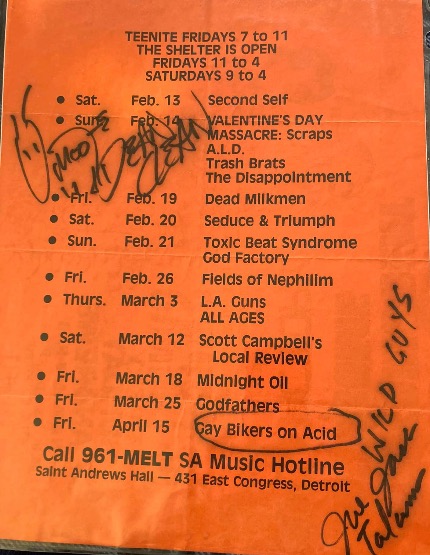 TEENITE FRIDAYS 7 to 11
THE SHELTER IS OPEN
FRIDAYS 11 to 4
SATURDAYS 9 to 4
• Sat. Feb. 13 Second Self
• Sun. Feb. 14 VALENTINE'S DAY
MASSACRE: Scraps
A.L.D.
Trash Brats
The Disappointment
DEAN
CLEAN
• Fri. Feb. 19 Dead Milkmen
• Sat. Feb. 20 Seduce & Triumph
• Sun. Feb. 21 Toxic Beat Syndrome
God Factory
• Fri. Feb. 26 Fields of Nephilim
• Thurs. March 3 L.A. Guns
ALL AGES
• Sat. March 12 Scott Campbell's
Local Review
• Fri. March 18 Midnight Oil
• Fri. March 25 Godfathers
• Fri. April 15 Gay Bikers on Acid
WILD GUYS
Joe Jack
Talcum
Call 961-MELT SA Music Hotline
Saint Andrews Hall — 431 East Congress, Detroit